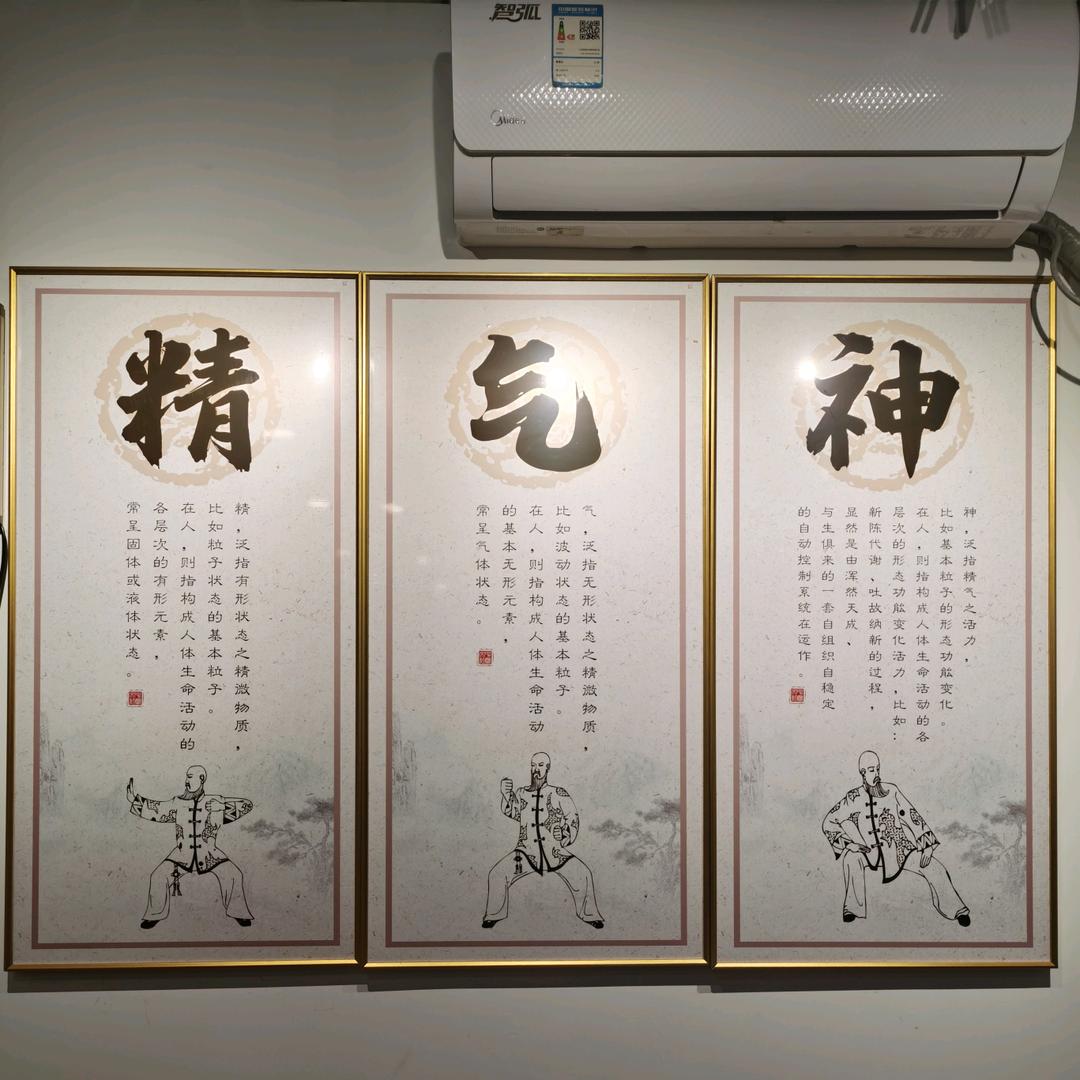 智弧
Midea
精
精,泛指有形状态之精微物质,
比如粒子状态的基本粒子。
在人,则指构成人体生命活动的
各层次的有形元素,
常呈固体或液体状态。
气
气,泛指无形状态之精微物质,
比如波动状态的基本粒子。
在人,则指构成人体生命活动
的基本无形元素,
常呈气体状态。
神
神,泛指精气之活力,
比如基本粒子的形态功能变化。
在人,则指构成人体生命活动的各
层次的形态功能变化活力,比如:
新陈代谢、吐故纳新的过程,
显然是由浑然天成、
与生俱来的一套自组织自稳定
的自动控制系统在运作。